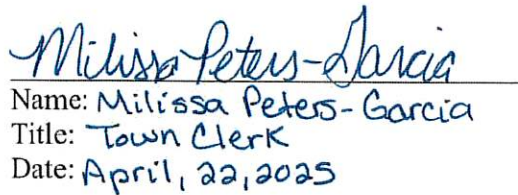 Milissa Peters-Garcia
Name: Milissa Peters-Garcia
Title: Town Clerk
Date: April, 22, 2025